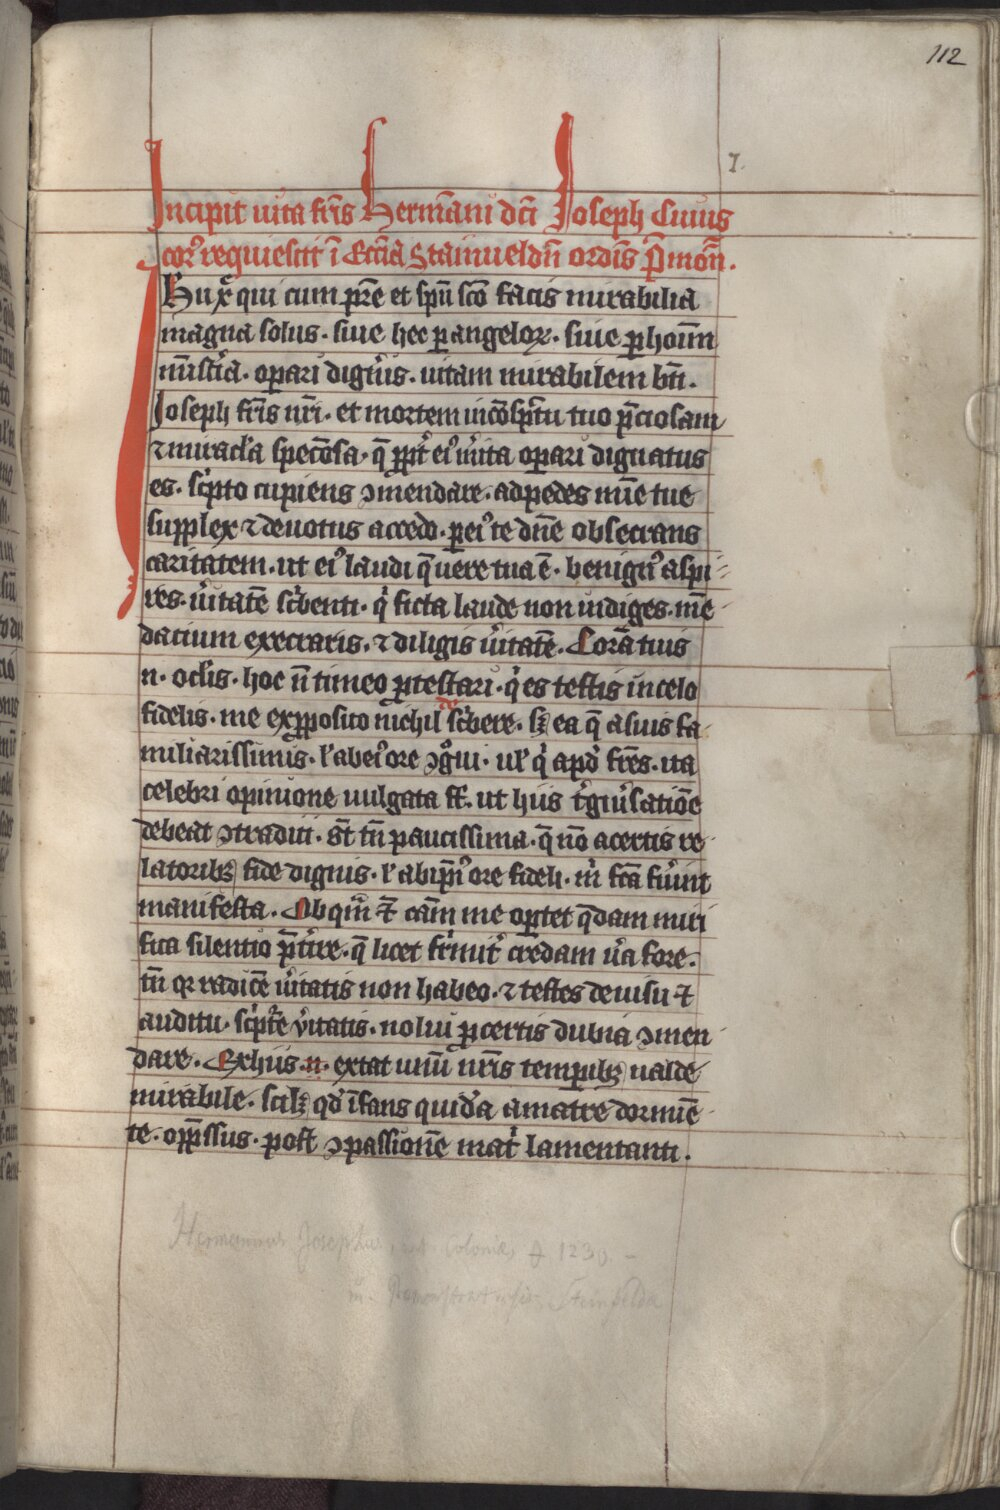 112
I.
Incipit uita fr̄is Herman̄i dc̄i Joseph Cuius
corꝰ requiescit ī Eccl̄ia Stainueldn̄ ordīs P̄mon̄.
IHu xp̄e qui cum pr̄e et sp̄u sc̄o facis mirabilia
magna solus. siue hec ꝑ angeloꝝ. siue ꝑ hoīm
mīst̄ia. oꝑari dignꝰis. uitam mirabilem bt̄i.
Joseph fr̄is nr̄i. et mortem in cōspc̄tu tuo p̄ciosam
⁊ miracl̓a specōsa. q̄ ꝓpt̓ eiꝰ m̓ita oꝑari dignatus
es. sc̓pto cupiens ꝯmendare. ad pedes mīe tue
supplex ⁊ deuotus accedo. ꝑ eiꝰ te dn̄e obsecrans
caritatem. ut eiꝰ laudi q̄ uere tua ē. benignꝰ aspi
res. u̓itatē sc̓benti. qͥ ficta laude non indiges. mē
dacium execraris. ⁊ diligis u̓itatē. Corā tuis
n. ocl̓is. hoc n̄ timeo ꝓtestari. qͥ es testis in celo
fidelis. me ex ꝓposito nichil sc̓bere. sꝫ ea q̄ a suis fa
miliarissimis. l̓ ab eiꝰ ore ꝯgͦui. ul̓ qͥ apd̓ fr̄es. ita
celebri opinione uulgata st̄. ut hiis t̓giu̓satiōe
debeat ꝯtradici. st̄ tn̄ paucissima. q̄ nō a certis re
latoribꝫ fide dignis. l̓ ab ip̄iꝰ ore fideli. m̓ fc̄a fu̓int
manifesta. Ob qm̄ ⁊ cām me oꝑtet qͣdam miri
fica silentio p̄t̓ire. q̄ licet firmit̓ credam u̓a fore.
tn̄ qꝛ radicē u̓itatis non habeo. ⁊ testes de uisu ⁊
auditu. sc̓pt̓e u̓itatis. nolui ꝓ certis dubia ꝯmen
dare. Ex hiis. n. extat unū nr̄is temꝑibꝫ ualde
mirabile. scilꝫ qd̓ īfans quidā a matre dormiē
te. opp̄ssus. post ꝯpassionē mat̓ lamentanti.
Hermannus Josephus, Coloniae 1230
Steinfelda